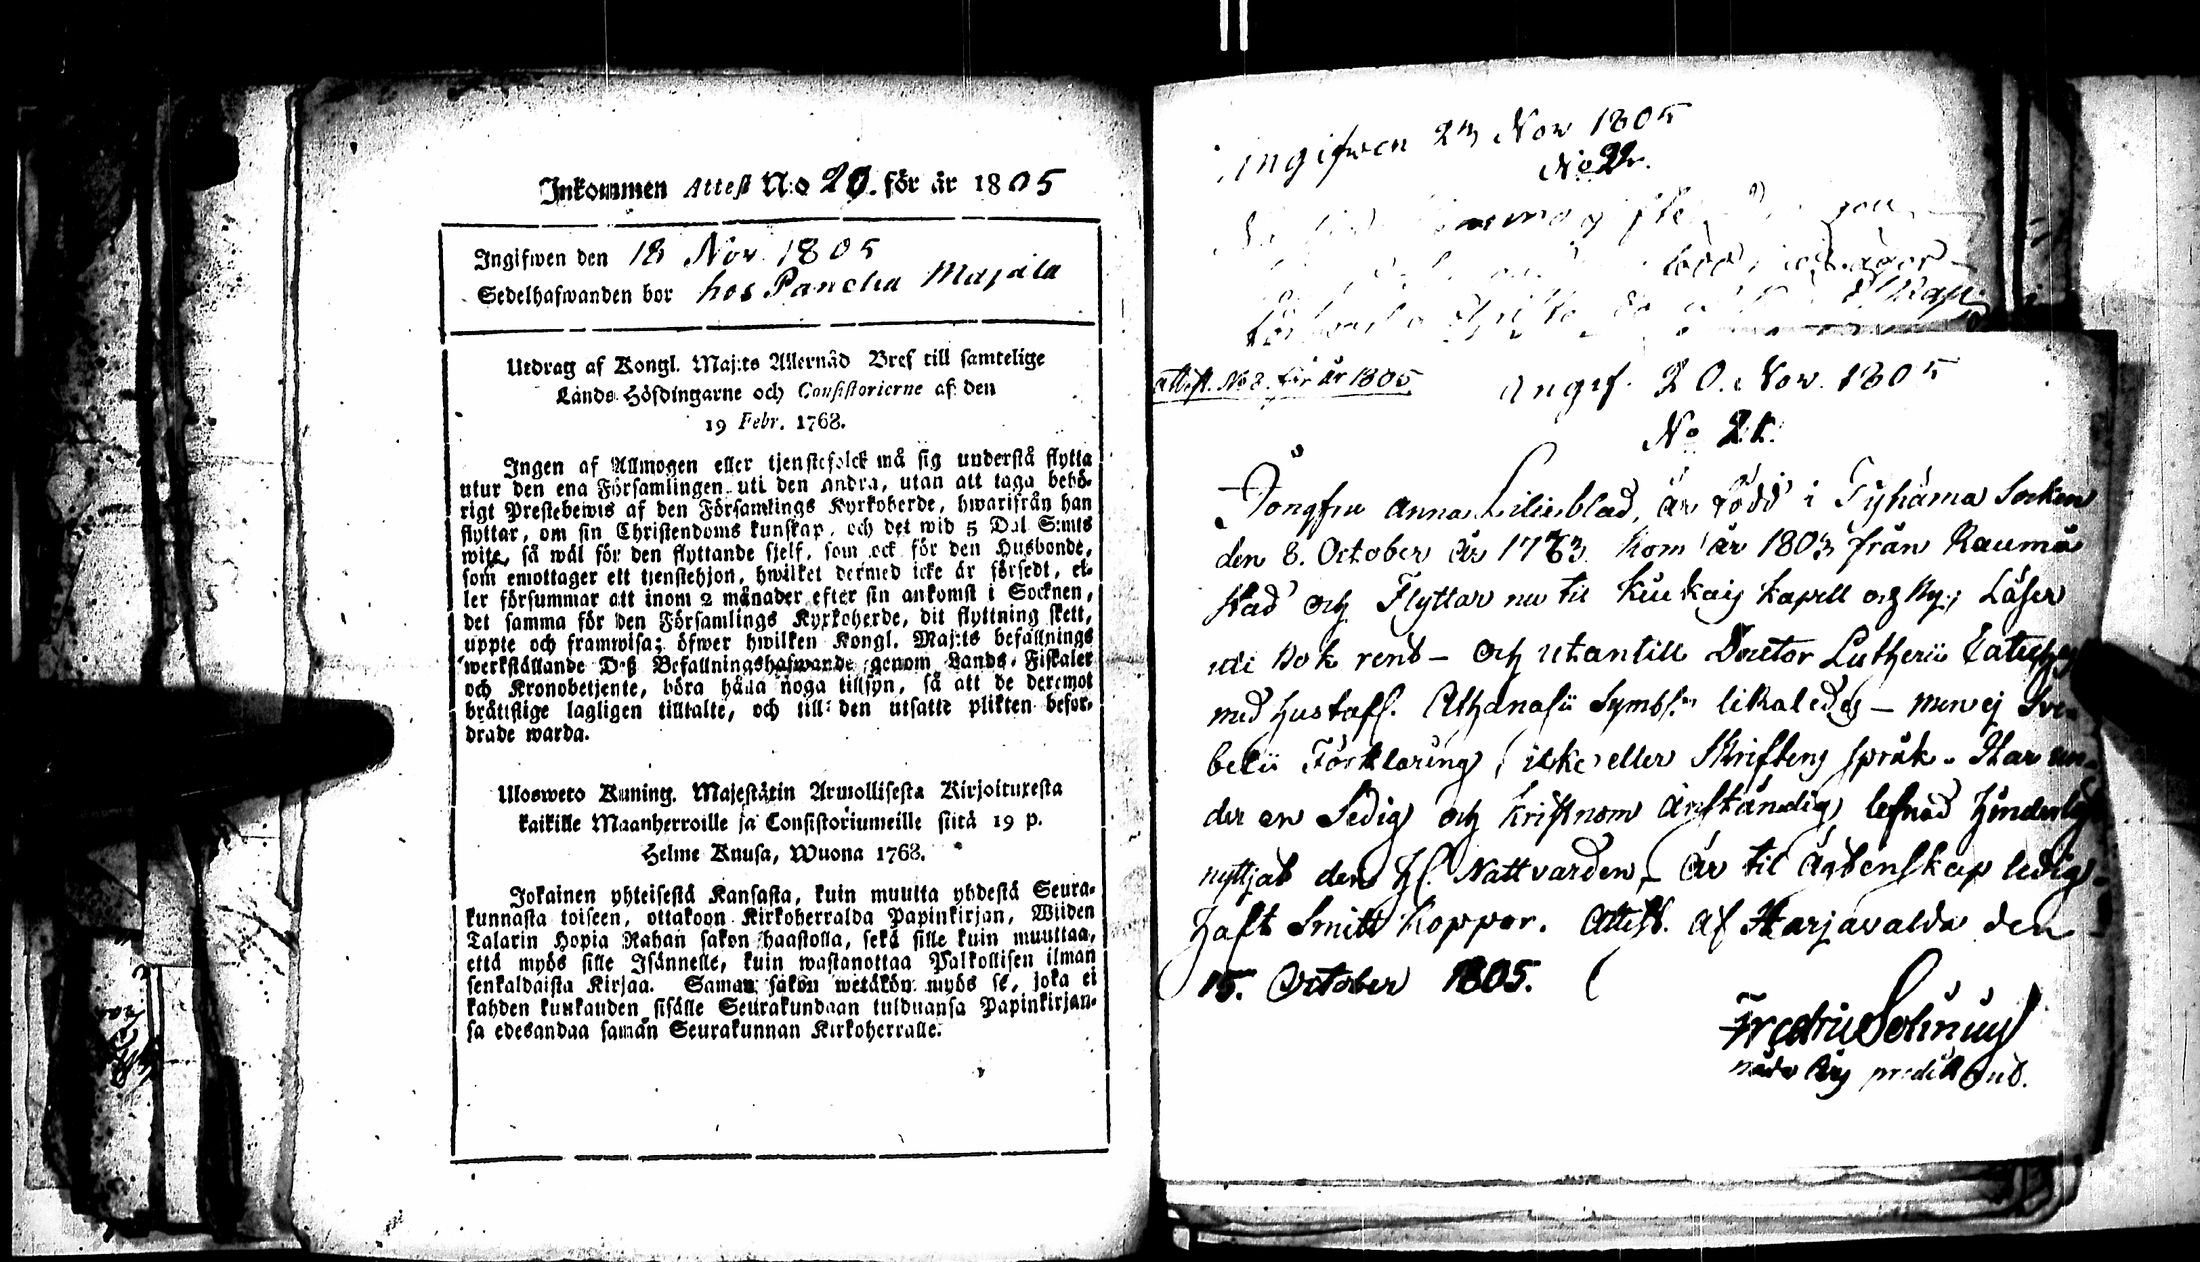 Inkommen Attest N:o 20. för år 1805
Ingifwen den 18 Nov. 1805
Sedelhafwanden bor hos Pancha Majala
Utdrag af Kongl. Maj:ts Allernåd Bref till samtelige
Lands-Höfdingarne och Consistorierne af den
19 Febr. 1768.
Ingen af Allmogen eller tjenstefolck må sig understå flytta
utur den ena Församlingen uti den andra, utan att taga behö-
rigt Prestebewis af den Församlings Kyrkoherde, hwarifrån han
flyttar, om sin Christendoms kunskap, och det wid 5 Dal S:mts
wite, så wäl för den flyttande sjelf, som ock för den Husbonde,
som emottager ett tjenstehjon, hwilket dermed icke är försedt, el-
ler försummar att inom 2 månader efter sin ankomst i Socknen,
det samma för den Församlings Kyrkoherde, dit flyttning skett,
uppte och framwisa; öfwer hwilken Kongl. Maj:ts befallnings
werkställande Deß Befallningshafwande genom Lands-Fiskaler
och Kronobetjente, böra hålla noga tillsyn, så att de deremot
bråttslige lagligen tilltalte, och till den utsatte plikten befor-
drade warda.
Ulosweto Kuning. Majestätin Armollisesta Kirjoituxesta
kaikille Maanherroille ja Consistoriumeille siitä 19 p.
Helme Kuusa, Wuona 1768.
Jokainen yhteisestä Kansasta, kuin muutta yhdestä Seura-
kunnasta toiseen, ottakoon Kirkoherralda Papinkirjan, Wiiden
Talarin Hopia Rahan sakon haastolla, sekä sille kuin muuttaa,
että myös sille Isännelle, kuin wastanottaa Palkollisen ilman
senkaldaista Kirjaa. Saman sakon wetäkön myös se, joka ei
kahden kuukauden sisälle Seurakundaan tulduansa Papinkirjan-
sa edesandaa saman Seurakunnan Kirkoherralle.
Ingifwen 23 Nov 1805
No 22.
Attest. No 8. för år 1805
Ingif. 20. Nov. 1805
No 21.
Jongfru Anna Lilieblad, är född i Tyhäma Socken
den 8. October år 1783. Kom år 1803 från Raumå
stad och Flyttar nu til Kiukais Kapell och By; Läser
uti Bok rent - och utantill Doctor Lutherii Cateches
med Hustafl. Athanasii Symb. likaledes - men ej Sve-
belii Förklaring, icke eller Skriftens språk. Har un-
der en Sedig och kristnom anständig lefnad hinderlöst
nyttjat den H. Nattvarden, - är til ägtenskap ledig.
haft Smitt Koppor. Attest. af Harjavalda den
15. October 1805.
Fredric